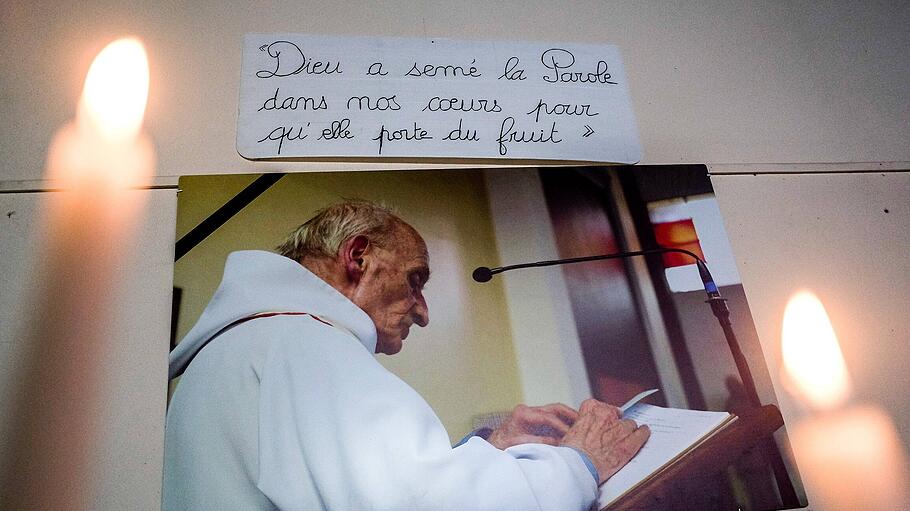 “Dieu a semé la Parole
dans nos cœurs pour
qu'elle porte du fruit »